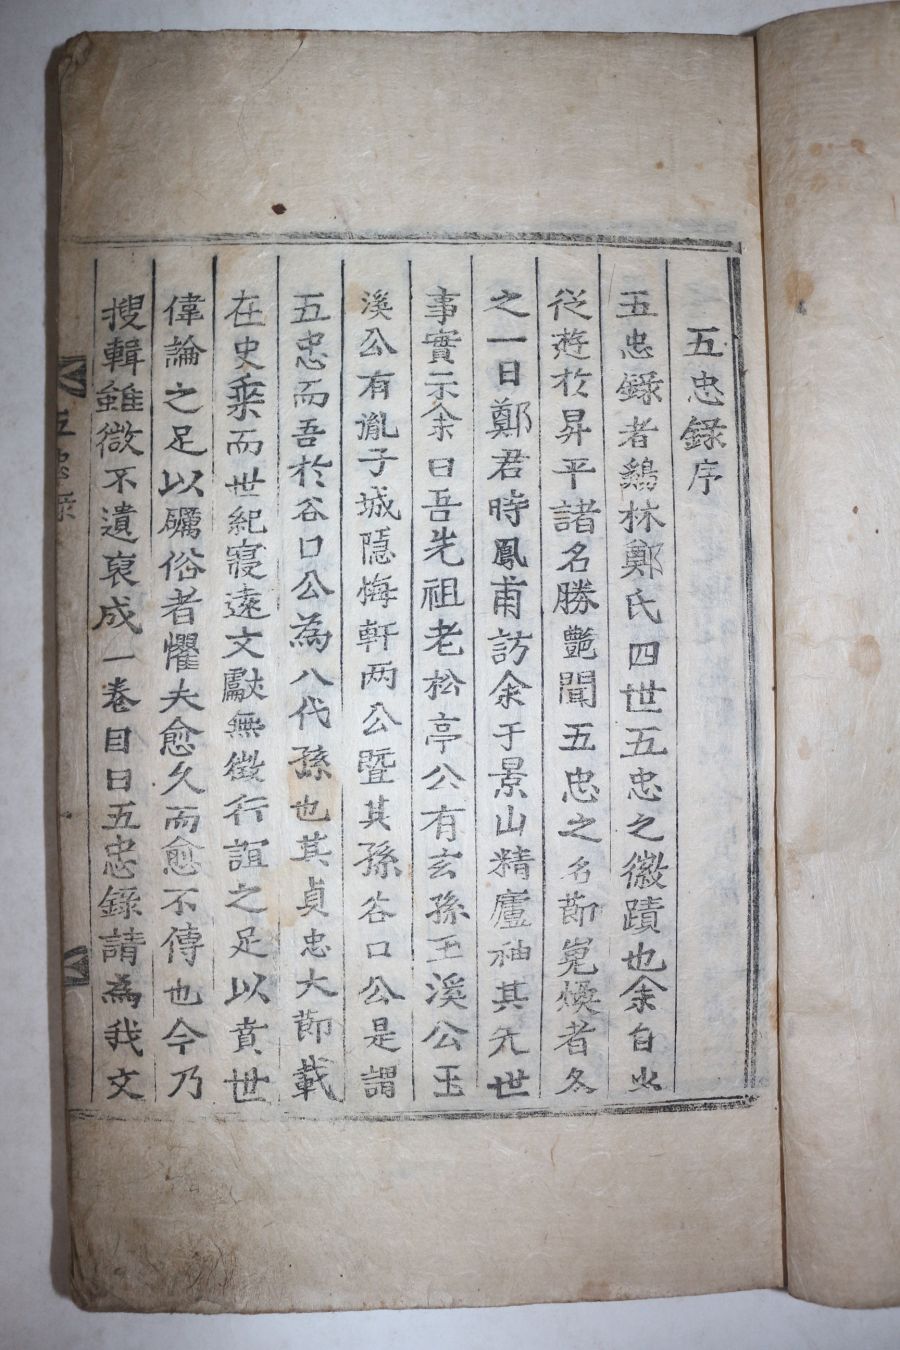 五忠錄序
五忠錄者鷄林鄭氏四世五忠之徽蹟也余自少
從遊於昇平諸名勝艶聞五忠之名節嵬煥者久
之一日鄭君時鳳甫訪余于景山精廬袖其先世
事實示余曰吾先祖老松亭公有玄孫玉溪公玉
溪公有胤子城隱梅軒两公曁其孫谷口公是謂
五忠而吾於谷口公為八代孫也其貞忠大節載
在史乘而世紀寢遠文獻無徵行誼之足以賁世
偉論之足以礪俗者懼夫愈久而愈不傳也今乃
搜輯雖微不遺裒成一卷目曰五忠錄請為我文
五忠錄